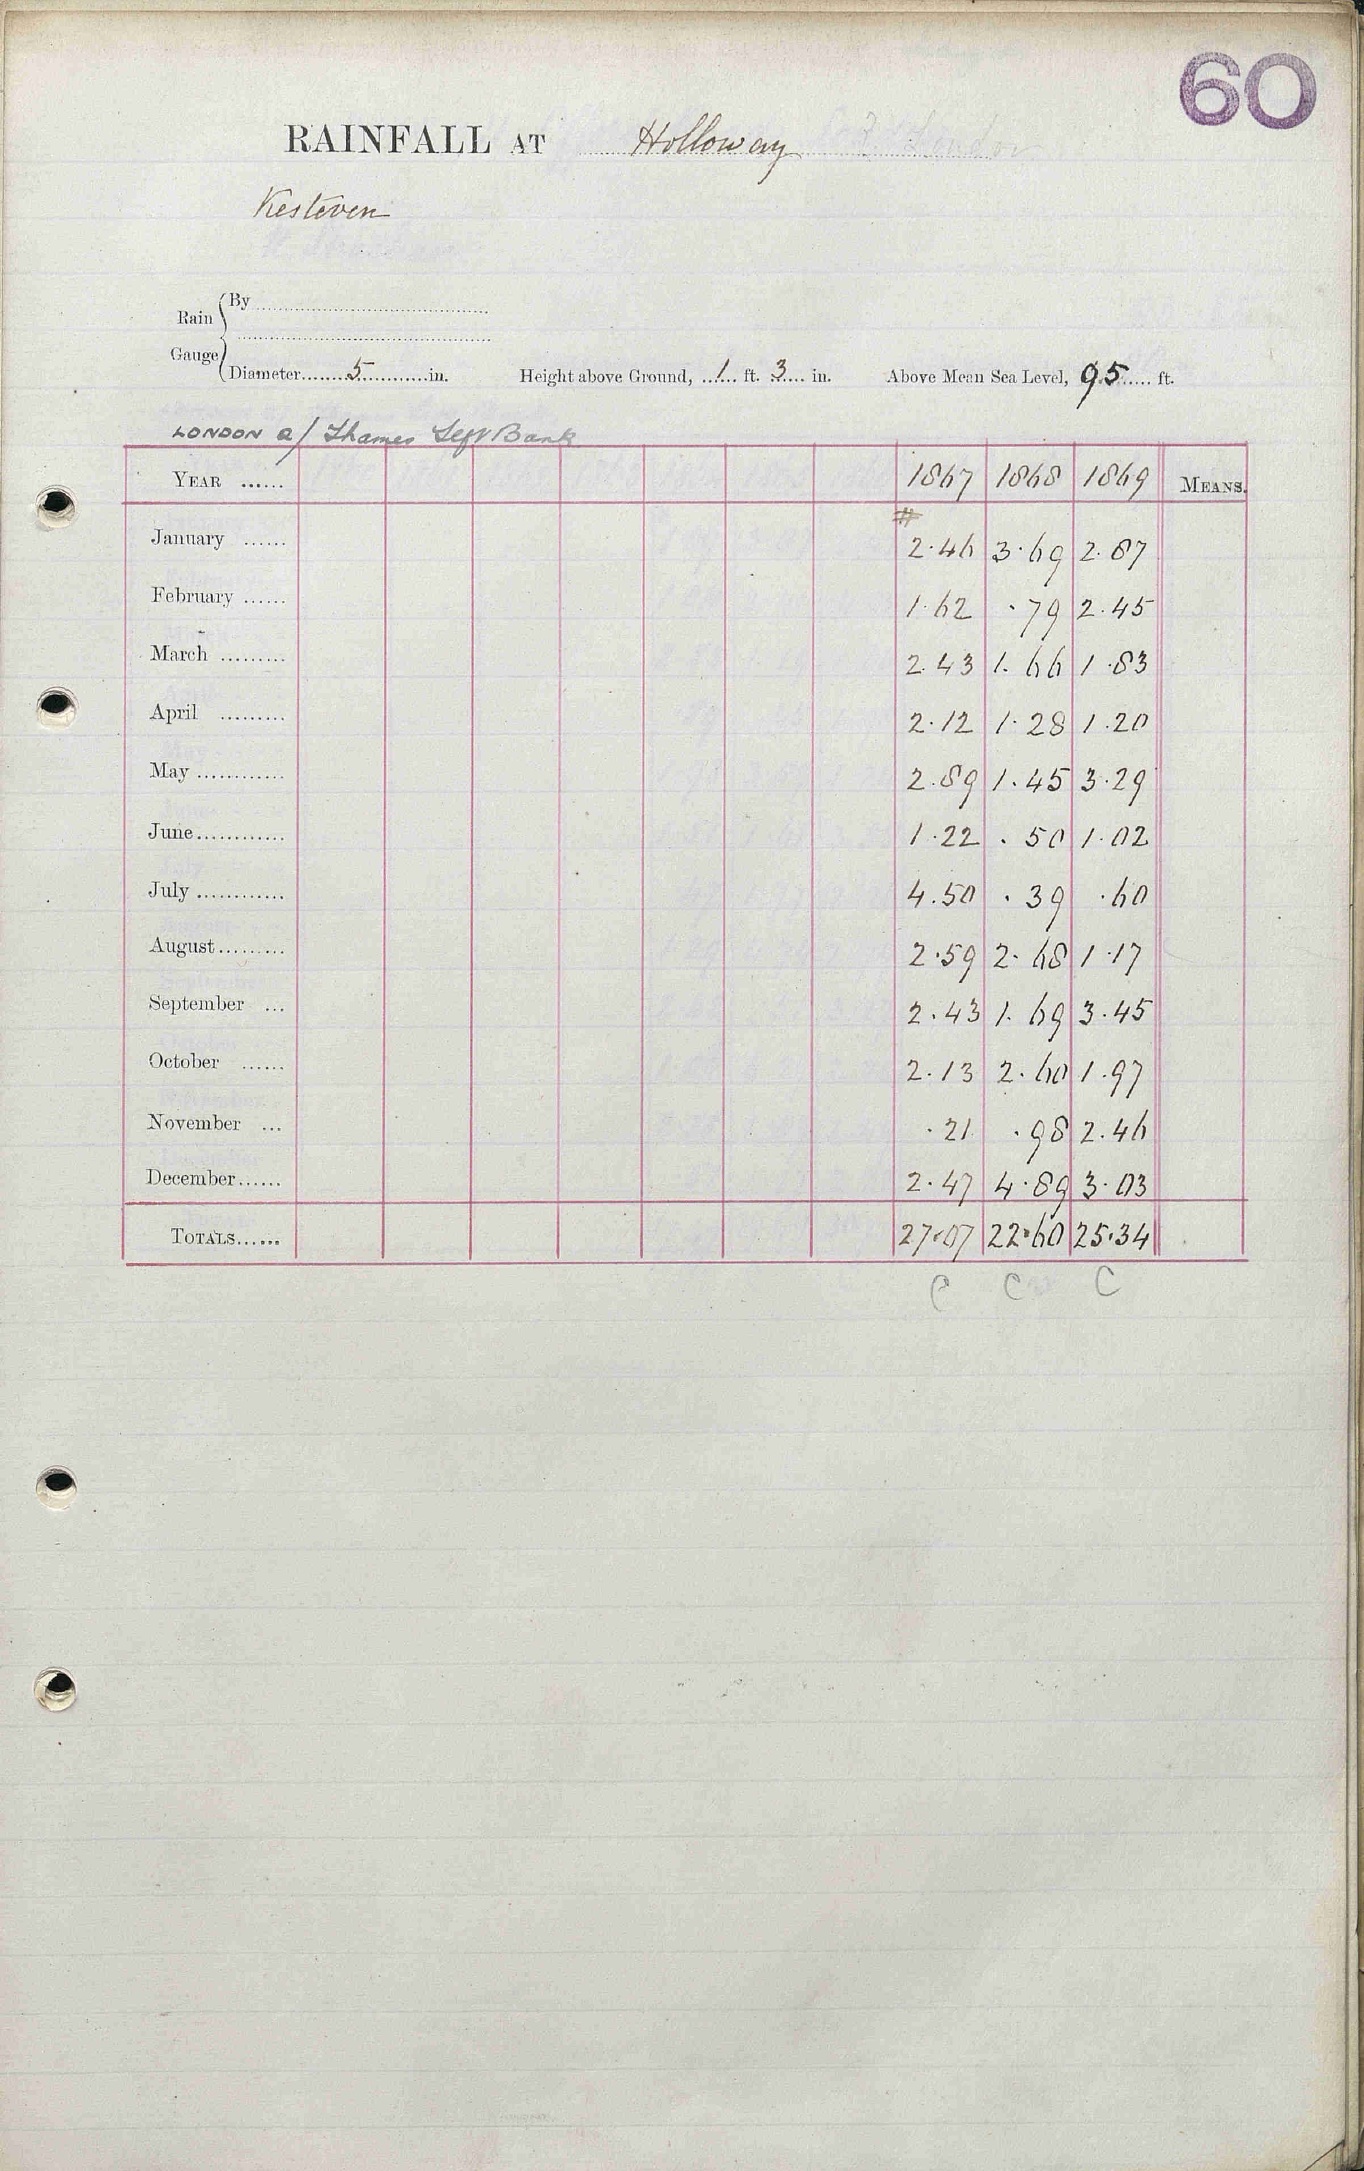 60
RAINFALL AT Holloway
Kesteven
Rain Gauge { By
Diameter 5 in. Height above Ground, 1 ft. 3 in. Above Mean Sea Level, 95 ft.
LONDON a/ Thames Left Bank
YEAR ...... 1867 1868 1869 MEANS.
#
January ...... 2.46 3.69 2.87
February ...... 1.62 .79 2.45
March ......... 2.43 1.66 1.83
April ......... 2.12 1.28 1.20
May ............ 2.89 1.45 3.29
June............ 1.22 .50 1.02
July ............ 4.50 .39 .60
August......... 2.59 2.68 1.17
September ... 2.43 1.69 3.45
October ...... 2.13 2.60 1.97
November ... .21 .98 2.46
December...... 2.47 4.89 3.03
TOTALS...... 27.07 22.60 25.34
C C C